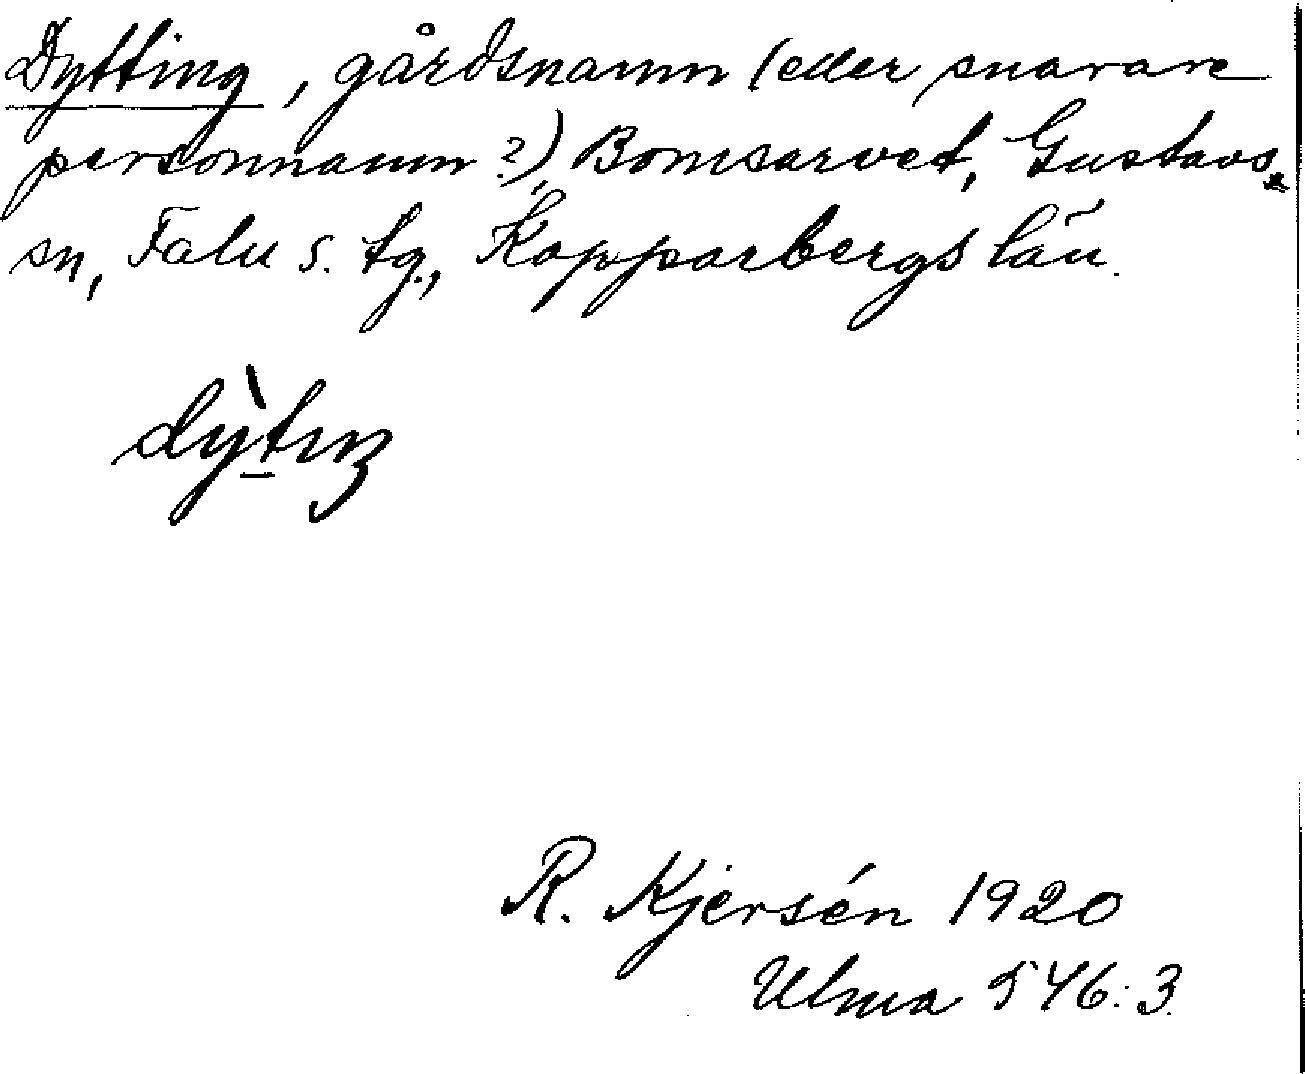 Dytting, gårdsnamn (eller snarare
personnamn ?), Bomsarvet, Gustavs
sn, Falu s. tg., Kopparbergs län.
dỳtıŋ
R. Kjersén 1920
Ulma 546:3